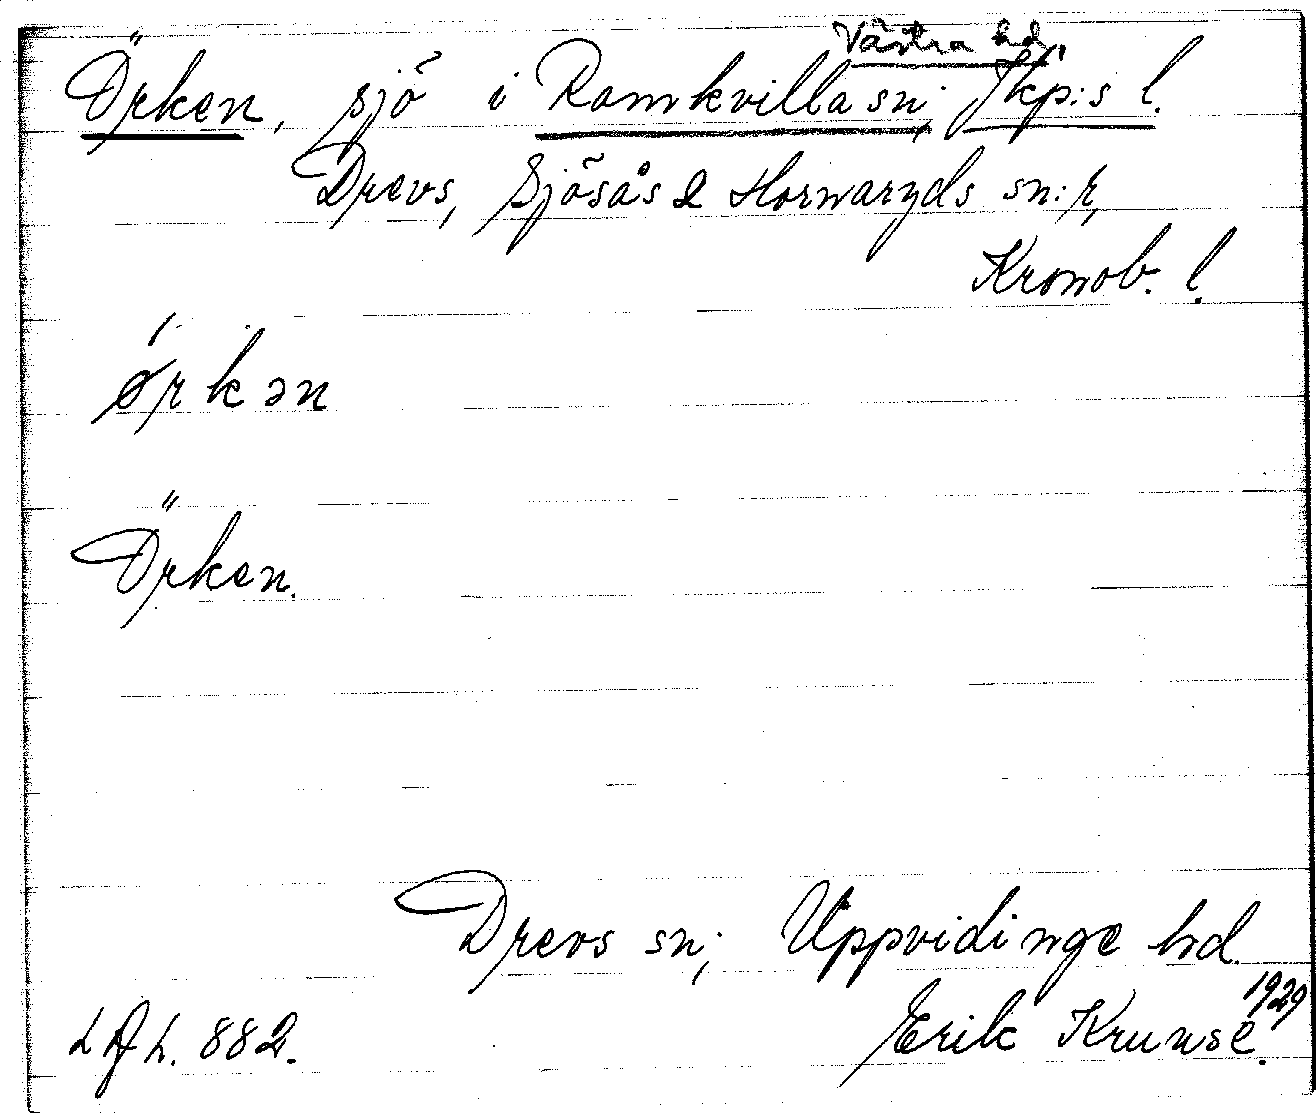 Västra hd,
Örken, sjö i Ramkvilla sn; Jkp:s l.
Drevs, Sjösås & Hornaryds sn:r,
Kronob. l.
ǿrkən
Örken.
Drevs sn; Uppvidinge hd.
1929
L A L. 882. Erik Kruuse.